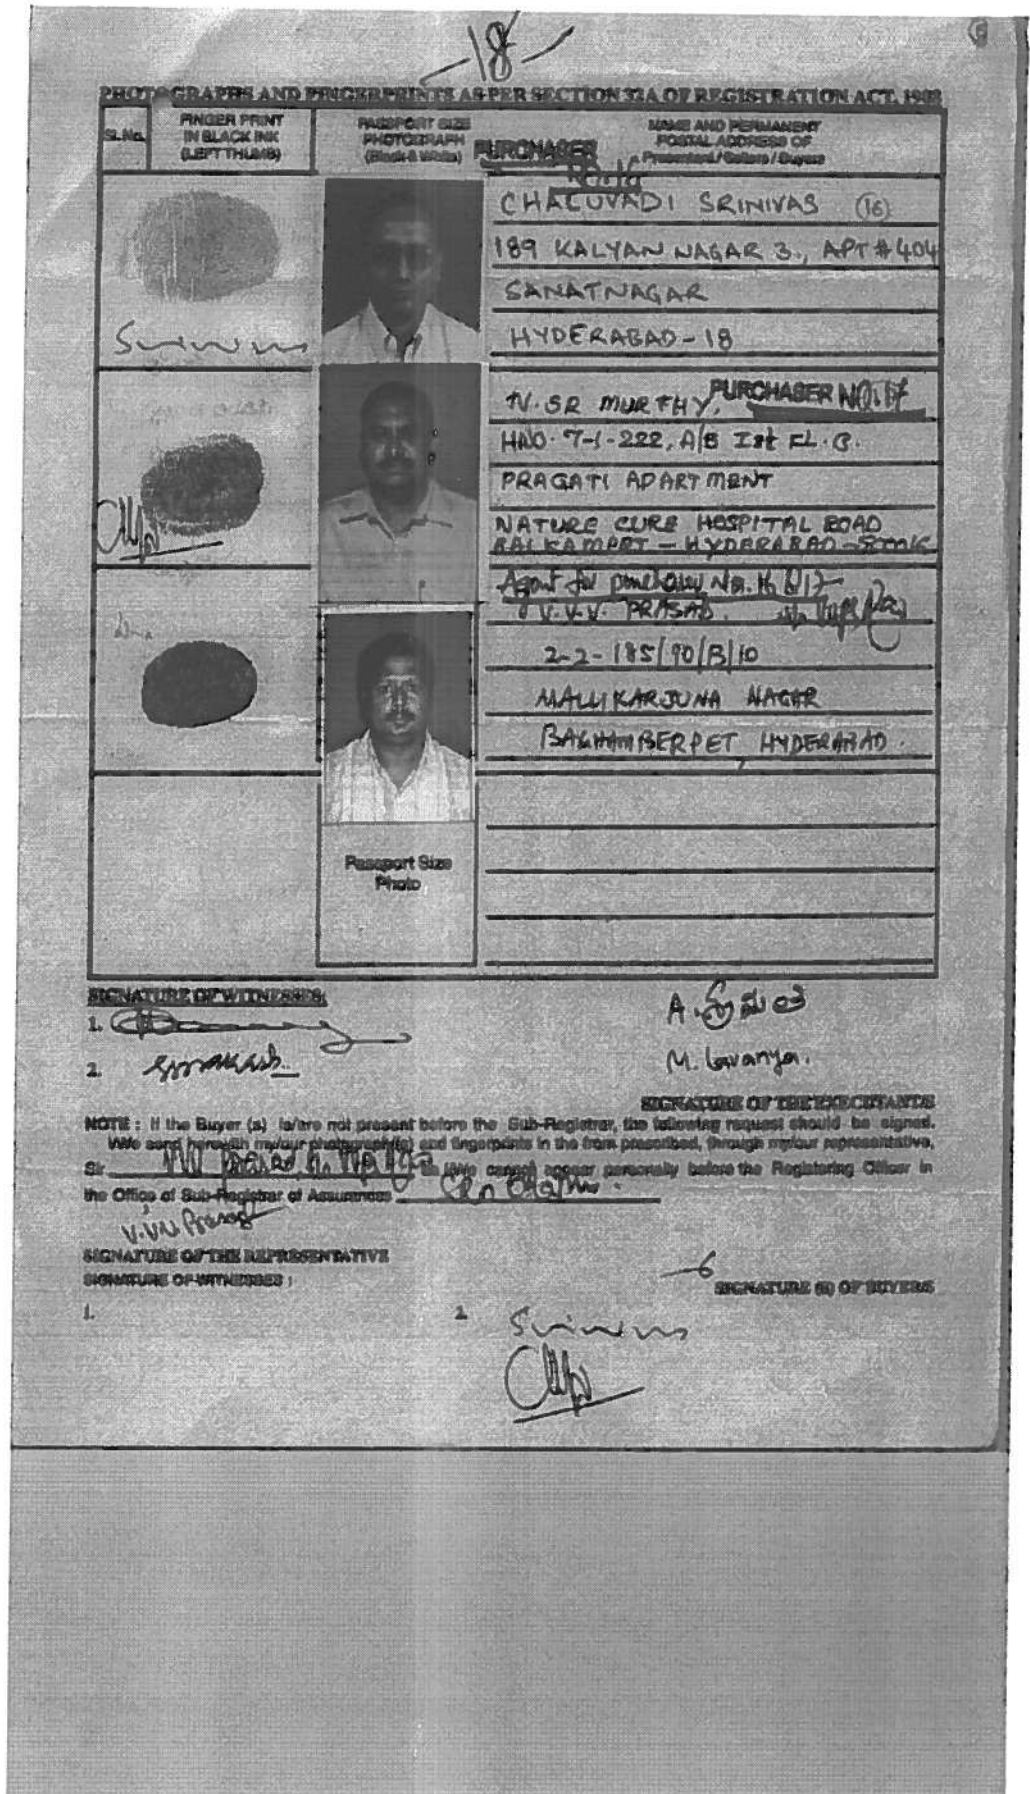 -18-
PHOTOGRAPHS AND FINGERPRINTS AS PER SECTION 32A OF REGISTRATION ACT, 1908
Sl.No.
FINGER PRINT
IN BLACK INK
(LEFT THUMB)
PASSPORT SIZE
PHOTOGRAPH
(Black & White)
PURCHASER
NAME AND PERMANENT
POSTAL ADDRESS OF
Presentant / Sellers / Buyers
CHALUVADI SRINIVAS (16)
189 KALYAN NAGAR 3., APT # 404
SANATNAGAR
HYDERABAD - 18
Srinivas
N. SR MURTHY, PURCHASER NO. 17
HNO. 7-1-222, A/B Ist FL. B.
PRAGATI APARTMENT
NATURE CURE HOSPITAL ROAD
BALKAMPET - HYDERABAD -
Agent for purchaser No. 16 & 17
V.V.V. PRASAD.
2-2-185/90/B/10
MALLIKARJUNA NAGAR
BAGHAMBERPET, HYDERABAD.
Passport Size
Photo
SIGNATURE OF WITNESSES.
1.
2.
M. Lavanya.
SIGNATURE OF THE EXECUTANTS
NOTE : If the Buyer (s) is/are not present before the Sub-Registrar, the following request should be signed.
I/We send herewith my/our photograph(s) and fingerprints in the from prescribed, through my/our representative,
Sr as I/We cannot appear personally before the Registering Officer in
the Office of Sub-Registrar of Assurances
V.V.V. Prasad
SIGNATURE OF THE REPRESENTATIVE
SIGNATURE OF WITNESSES :
SIGNATURE (S) OF BUYERS
1.
2. Srinivas